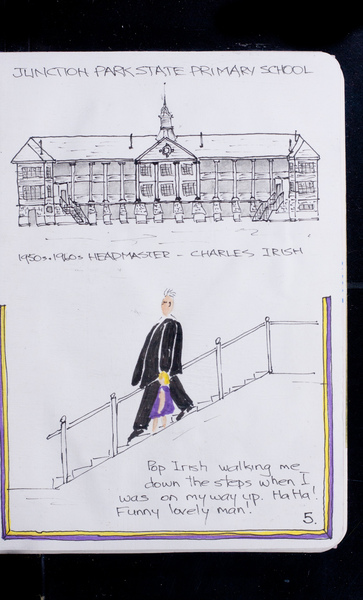 JUNCTION PARK STATE PRIMARY SCHOOL
1950s.1960s HEADMASTER - CHARLES IRISH
Pop Irish walking me
down the steps when I
was on my way up. HaHa!
Funny lovely man!
5.